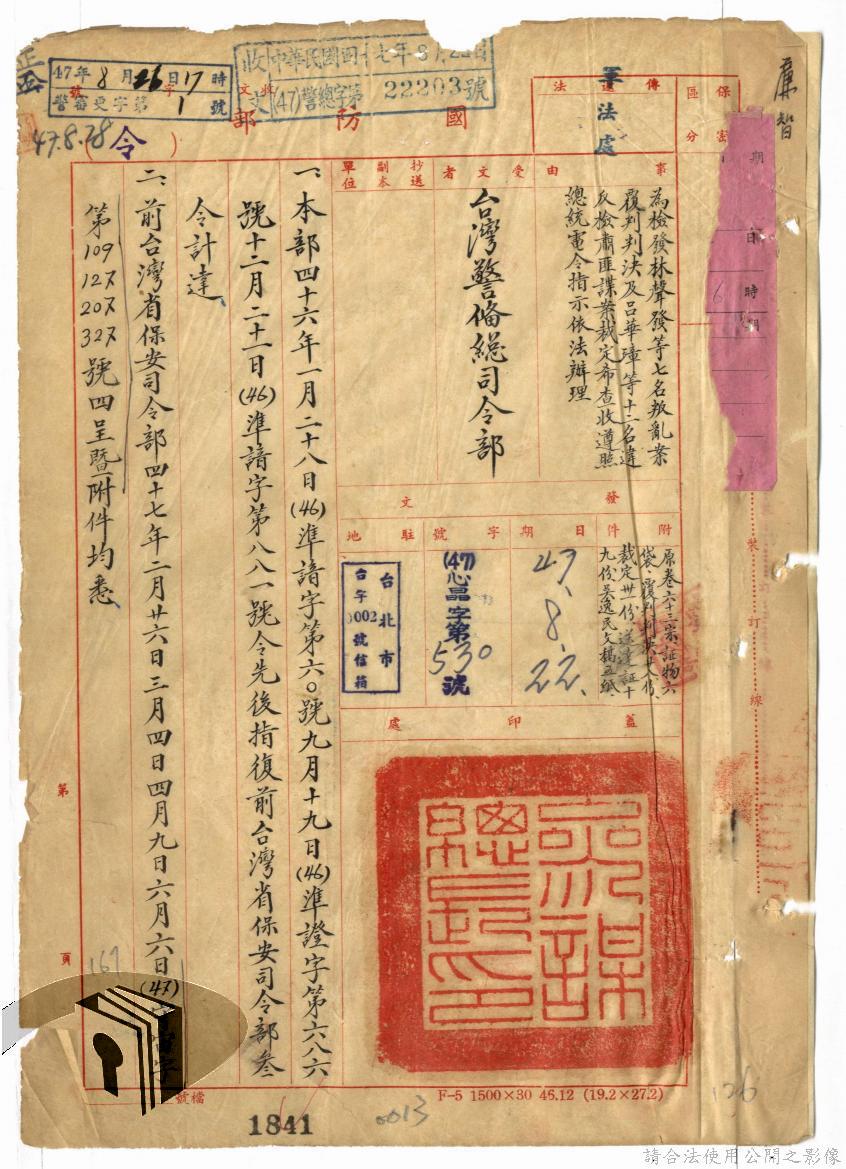 收 中華民國四十七年8月22日
收文 (47)警總字第22203號
47年8月26日17時
警審更字第1號
47.8.28
國防部
(令)
保密區分
傳遞法
軍法處
廉智
期
時
6
事由
為檢發林聲發等七名叛亂案
覆判判決及呂華璋等十二名違
反檢肅匪諜案裁定希查收遵照
總統電令指示依法辦理
受文者
台灣警備總司令部
抄送副本單位
發文
附件
原卷六十三宗証物六
袋、覆判判決十八份、
裁定卅一份、送達証十
九份吳逸民文稿五紙、
日期
47.8.22.
字號
(47)心晶字第530號
駐地
台北市
台字
002號信箱
蓋印處
參謀總長印
一、本部四十六年一月二十八日(46)準諳字第六○號九月十九日(46)準證字第六八六
號十二月二十一日(46)準諳字第八八一號令先後指復前台灣省保安司令部叁
令計達
二、前台灣省保安司令部四十七年二月廿六日三月四日四月九日六月六日(47)
第109 127 207 327號四呈暨附件均悉
裝訂線
第
頁
169
檔號
1841
0013
F-5 1500×30 46.12 (19.2×27.2)
126
請合法使用公開之影像